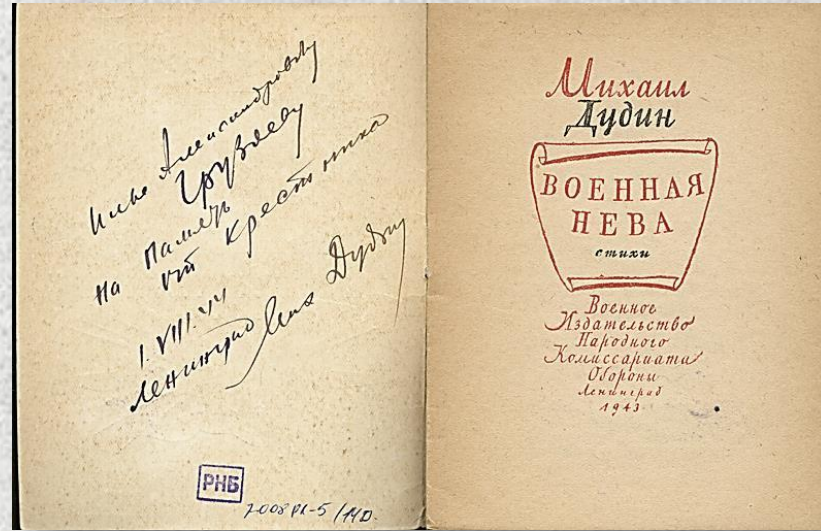 Илье Александровичу
Груздеву
На память
от крестника
1.VIII.44
Ленинград Мих Дудин
РНБ
Михаил
Дудин
ВОЕННАЯ
НЕВА
стихи
Военное
Издательство
Народного
Комиссариата
Обороны
Ленинград
1943